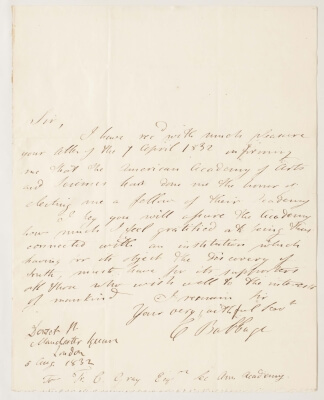 Sir,
I have rec'd with much pleasure
your letter of the 7 April 1832 informing
me that the American Academy of Arts
and Sciences had done me the honor of
electing me a fellow of their Academy
I beg you will assure the Academy
how much I feel gratified at being thus
connected with an institution which
having for its object the discovery of
truth, must have for its supporters
all those who wish well to the interests
of mankind
I remain Sir
Your very faithful Serv^t
C Babbage
Dorset St
Manchester Square
London
5 Aug 1832
To F. C. Gray Esq^re Sc Am Academy.